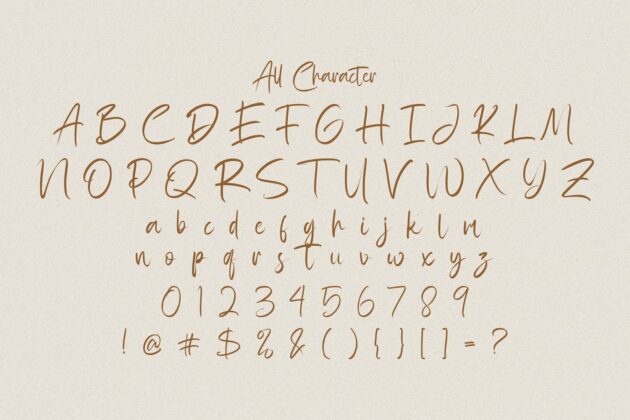 All Character
A B C D E F G H I J K L M
N O P Q R S T U V W X Y Z
a b c d e f g h i j k l m
n o p q r s t u v w x y z
0 1 2 3 4 5 6 7 8 9
! @ # $ % & ( ) { } [ ] = ?